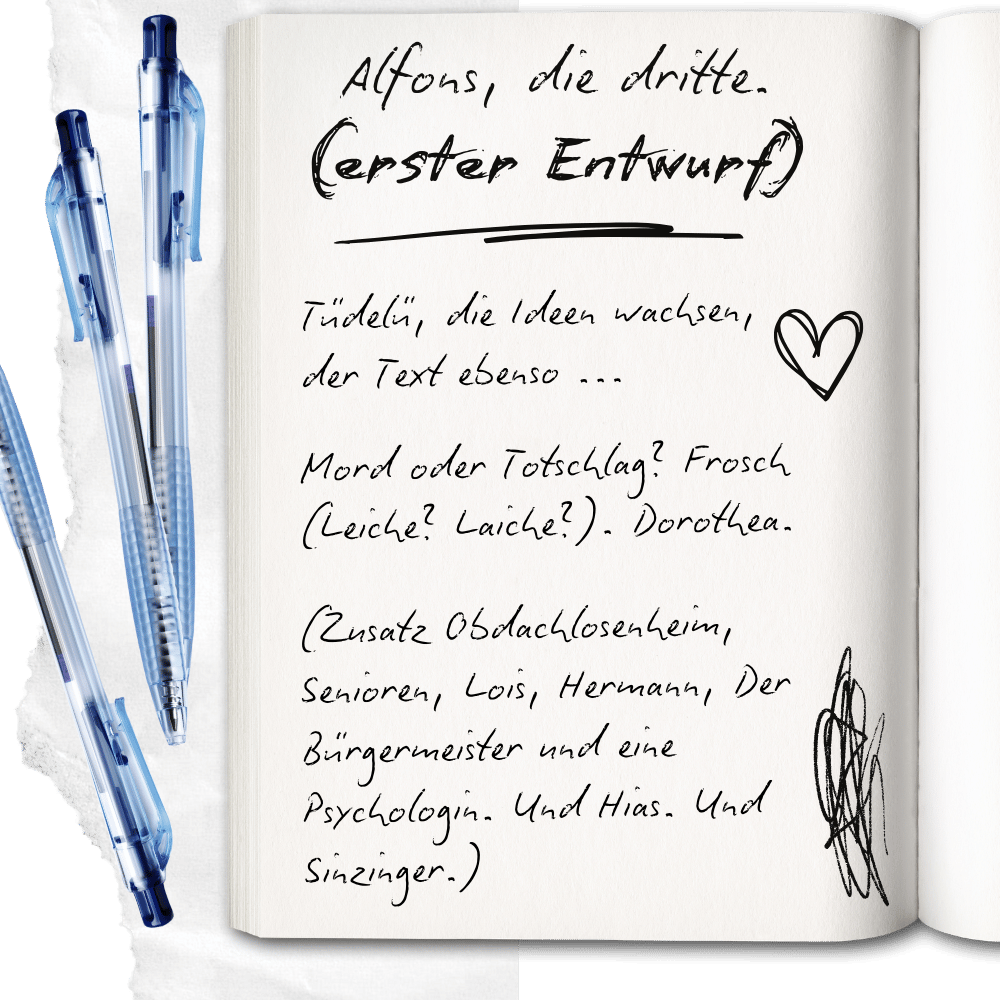 Alfons, die dritte.
(erster Entwurf)
Tüdelü, die Ideen wachsen,
der Text ebenso ...
Mord oder Totschlag? Frosch
(Leiche? Laiche?). Dorothea.
(Zusatz Obdachlosenheim,
Senioren, Lois, Hermann, Der
Bürgermeister und eine
Psychologin. Und Hias. Und
Sinzinger.)